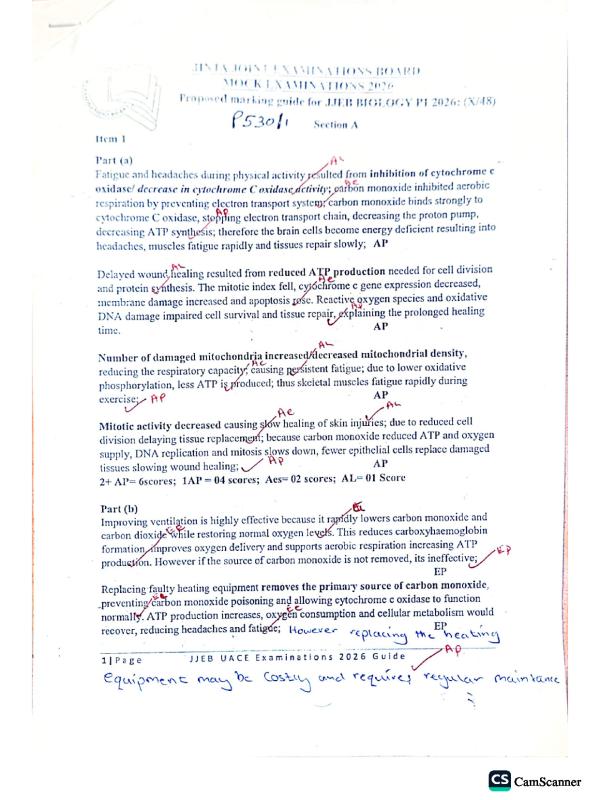 JINJA JOINT EXAMINATIONS BOARD
MOCK EXAMINATIONS 2026
Proposed marking guide for JJEB BIOLOGY P1 2026: (X/48)
P530/1 Section A
Item 1
Part (a)
AL
Fatigue and headaches during physical activity resulted from inhibition of cytochrome c
Ae
oxidase/ decrease in cytochrome C oxidase activity; carbon monoxide inhibited aerobic
respiration by preventing electron transport system; carbon monoxide binds strongly to
AP
cytochrome C oxidase, stopping electron transport chain, decreasing the proton pump,
decreasing ATP synthesis; therefore the brain cells become energy deficient resulting into
headaches, muscles fatigue rapidly and tissues repair slowly; AP
AL
Delayed wound healing resulted from reduced ATP production needed for cell division
Ae
and protein synthesis. The mitotic index fell, cytochrome c gene expression decreased,
membrane damage increased and apoptosis rose. Reactive oxygen species and oxidative
AP
DNA damage impaired cell survival and tissue repair, explaining the prolonged healing
time. AP
AL
Number of damaged mitochondria increased/decreased mitochondrial density,
Ae
reducing the respiratory capacity; causing persistent fatigue; due to lower oxidative
phosphorylation, less ATP is produced; thus skeletal muscles fatigue rapidly during
exercise; AP AP
Ae AL
Mitotic activity decreased causing slow healing of skin injuries; due to reduced cell
division delaying tissue replacement; because carbon monoxide reduced ATP and oxygen
supply, DNA replication and mitosis slows down, fewer epithelial cells replace damaged
tissues slowing wound healing; AP AP
2+ AP= 6scores; 1AP = 04 scores; Aes= 02 scores; AL= 01 Score
Part (b)
EL
Improving ventilation is highly effective because it rapidly lowers carbon monoxide and
Ee
carbon dioxide while restoring normal oxygen levels. This reduces carboxyhaemoglobin
formation, improves oxygen delivery and supports aerobic respiration increasing ATP
production. However if the source of carbon monoxide is not removed, its ineffective; EP
EP
Replacing faulty heating equipment removes the primary source of carbon monoxide,
preventing carbon monoxide poisoning and allowing cytochrome c oxidase to function
Ee
normally. ATP production increases, oxygen consumption and cellular metabolism would
EP
recover, reducing headaches and fatigue; However replacing the heating
1|Page JJEB UACE Examinations 2026 Guide AP
Equipment may be Costly and requires regular maintance
CS CamScanner